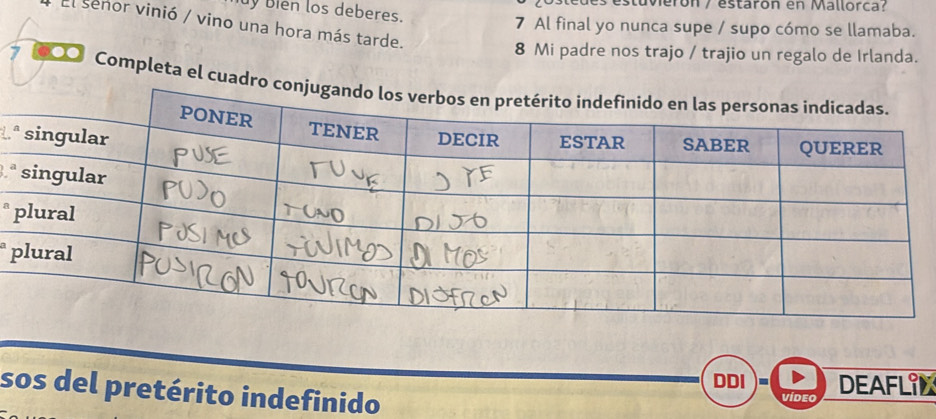 4 El señor vinió / vino una hora más tarde.
uy bien los deberes.
estuvieron / estaron en Mallorca?
7 Al final yo nunca supe / supo cómo se llamaba.
8 Mi padre nos trajo / trajio un regalo de Irlanda.
7 Completa el cuadro conjugando los verbos en pretérito indefinido en las personas indicadas.
PONER TENER DECIR ESTAR SABER QUERER
ª singular PUSE TUVE
.ª singular PUSO DIJO
ª plural POSIMOS DIMOS
ª plural PUSIRON
sos del pretérito indefinido
DDI
VÍDEO
DEAFLIX